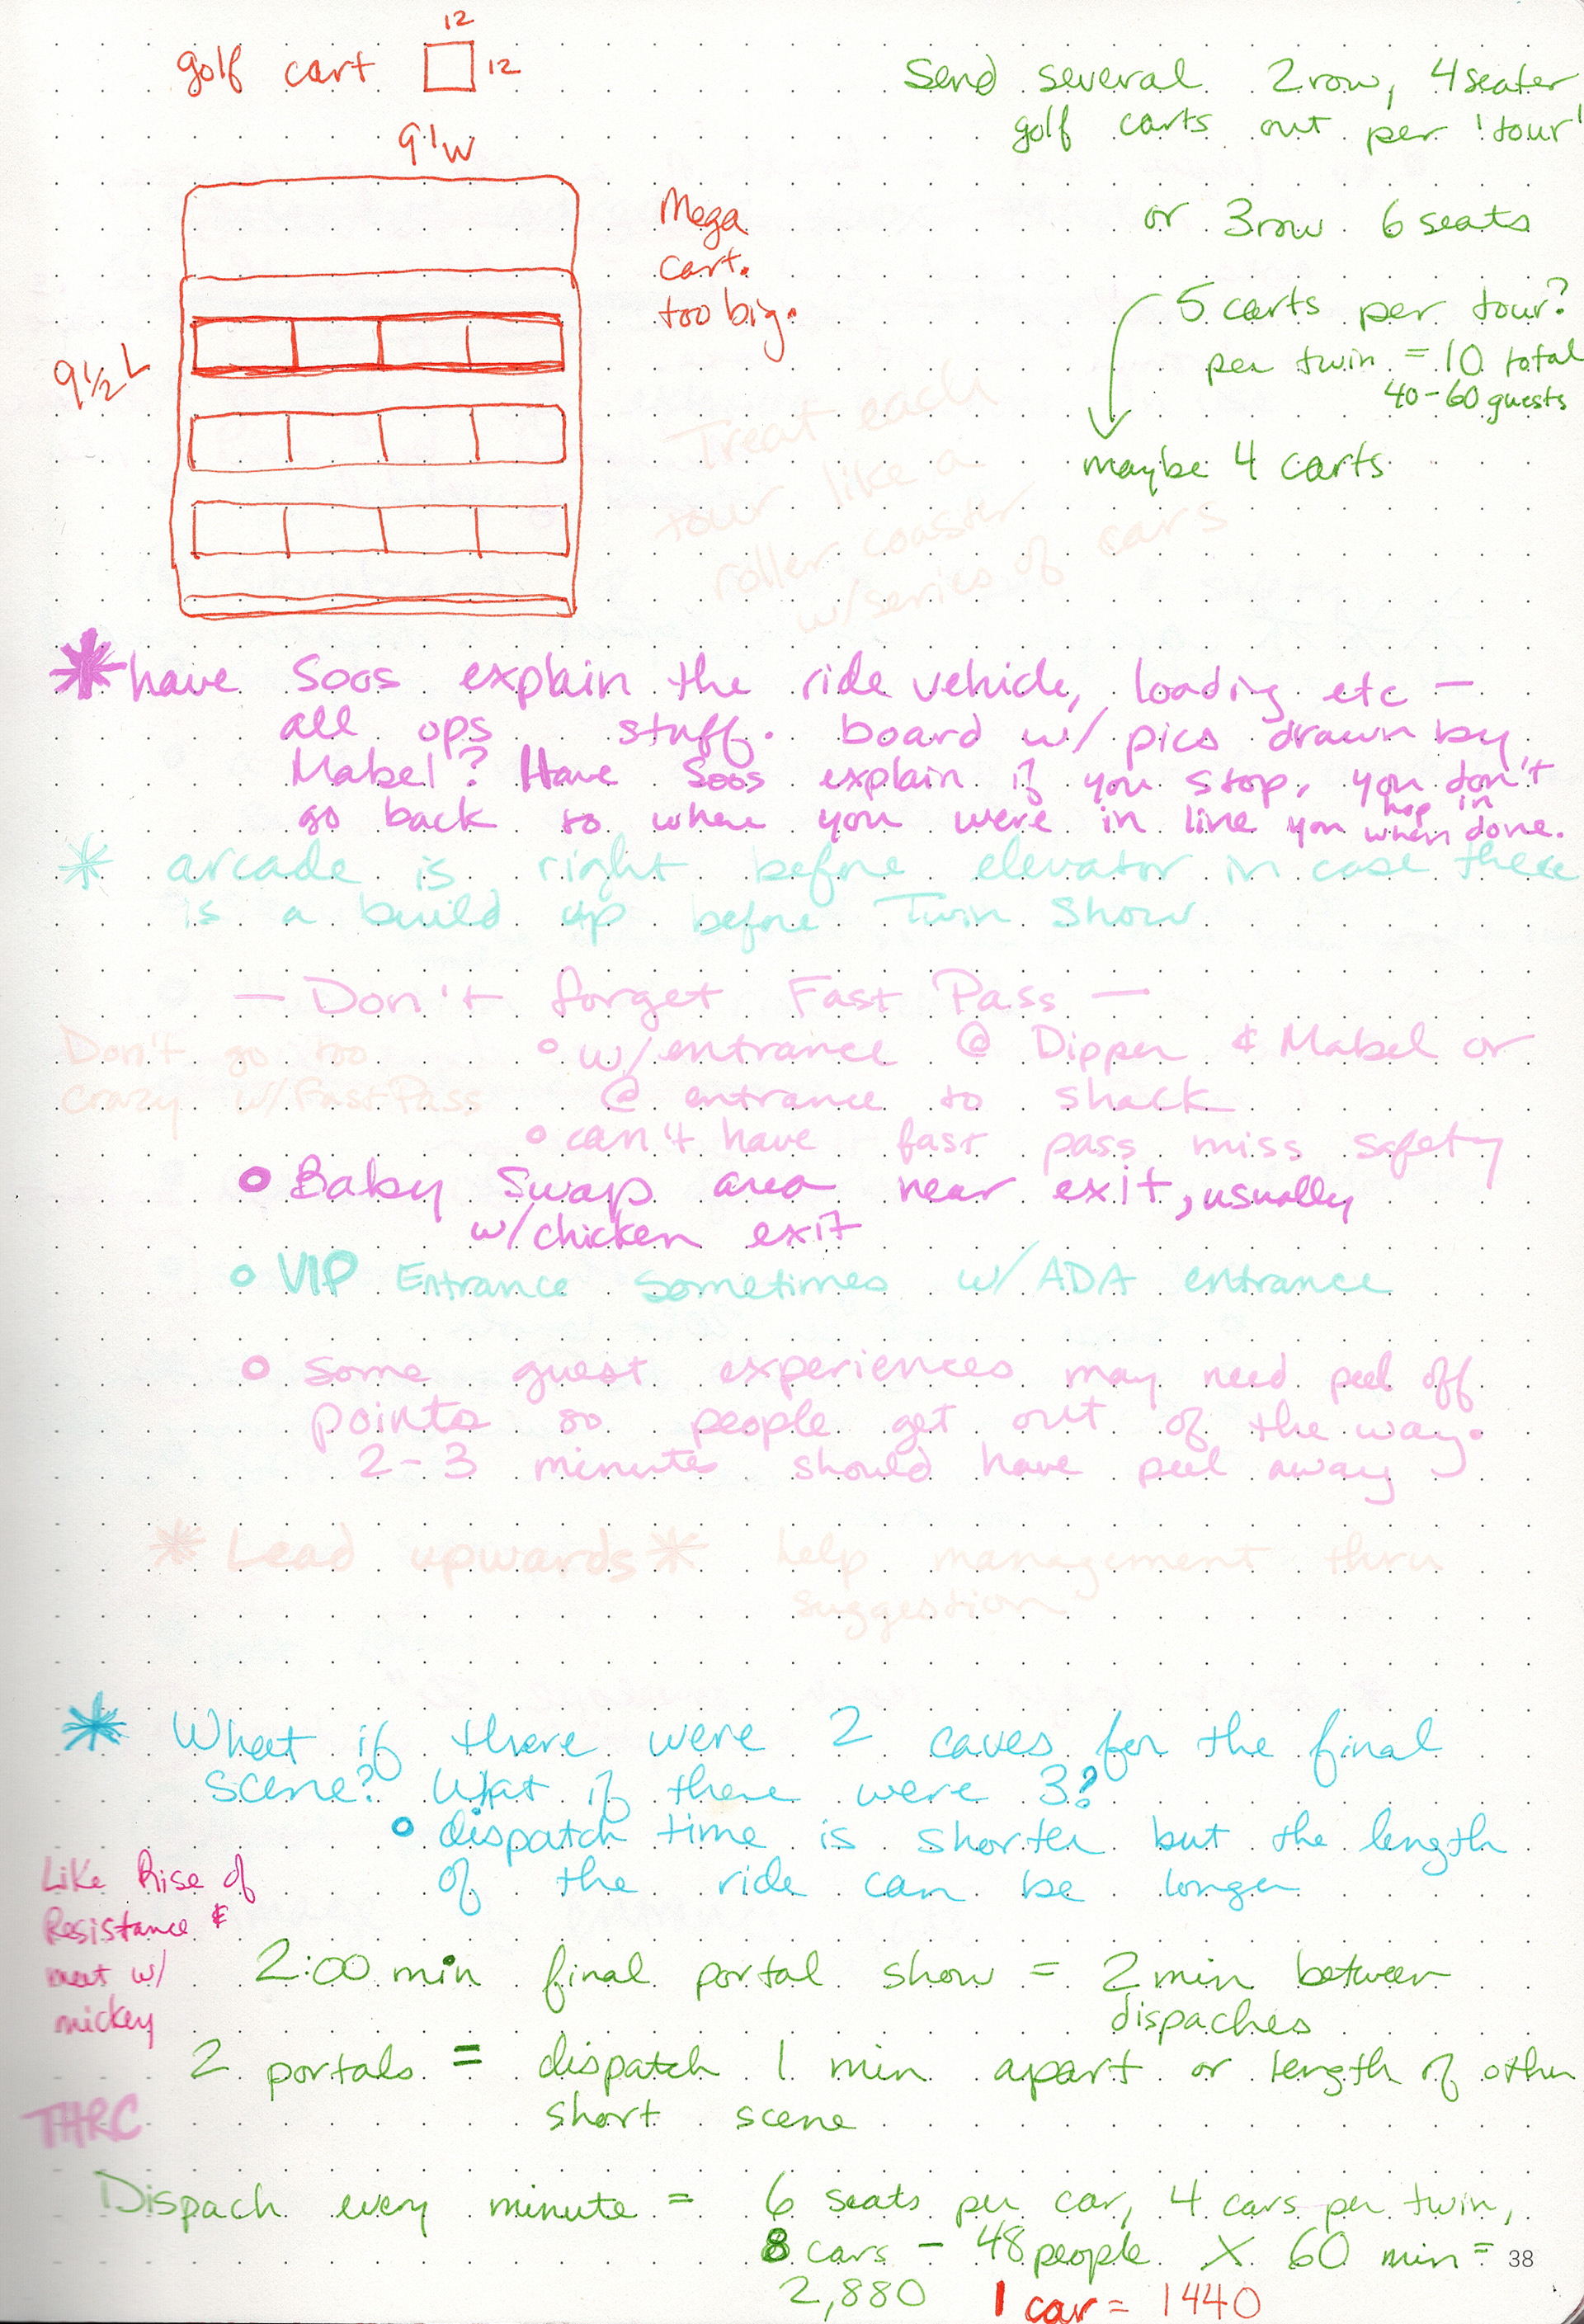 golf cart 12
12
9'W
9½ L
Mega
cart.
too big.
Send several 2row, 4seater
golf carts out per 'tour'
or 3row 6 seats
5 carts per tour?
per twin = 10 total
40-60 guests
maybe 4 carts
Treat each
tour like a
roller coaster
w/series of cars
have Soos explain the ride vehicle, loading etc —
all ops stuff. board w/ pics drawn by
Mabel? Have Soos explain if you stop, you don't
go back to where you were in line you hop in
when done.
arcade is right before elevator in case there
is a build up before Twin Show
— Don't forget Fast Pass —
Don't go too
crazy w/FastPass
w/entrance @ Dipper & Mabel or
@ entrance to shack
can't have fast pass miss safety
Baby Swap area near exit, usually
w/chicken exit
VIP Entrance sometimes w/ADA entrance
Some guest experiences may need peel off
points so people get out of the way.
2-3 minutes should have peel away
* Lead upwards * help management thru
suggestion
What if there were 2 caves for the final
scene? What if there were 3?
dispatch time is shorter but the length
of the ride can be longer
Like Rise of
Resistance &
meet w/
mickey
2:00 min final portal show = 2 min between
dispaches
2 portals = dispatch 1 min apart or length of other
short scene
THRC
Dispach every minute = 6 seats per car, 4 cars per twin,
8 cars - 48 people X 60 min =
2,880 1 car = 1440
38